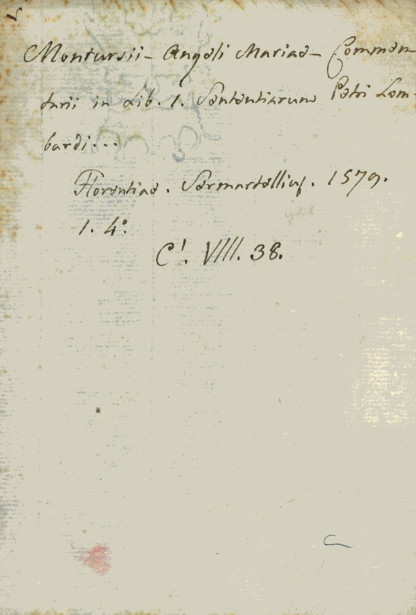 Montursii - Angeli Mariae - Commen-
tarii in Lib. 1. Sententiarum Petri Lom-
bardi...
Florentiae. Sermartellius. 1579.
1. 4º.
C!. VIII. 38.